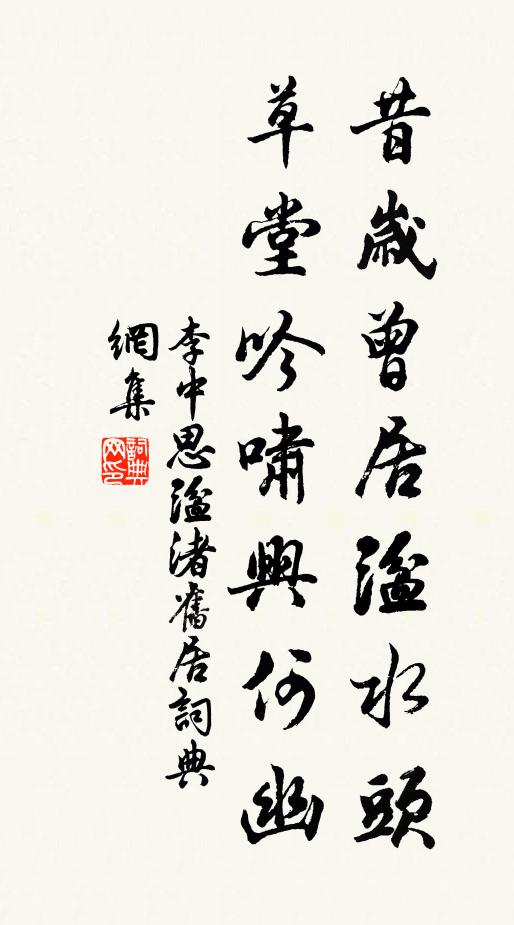 昔歲曾居湓水頭
草堂吟嘯興何幽
李中思湓渚舊居詞典
網集
詞典
网印